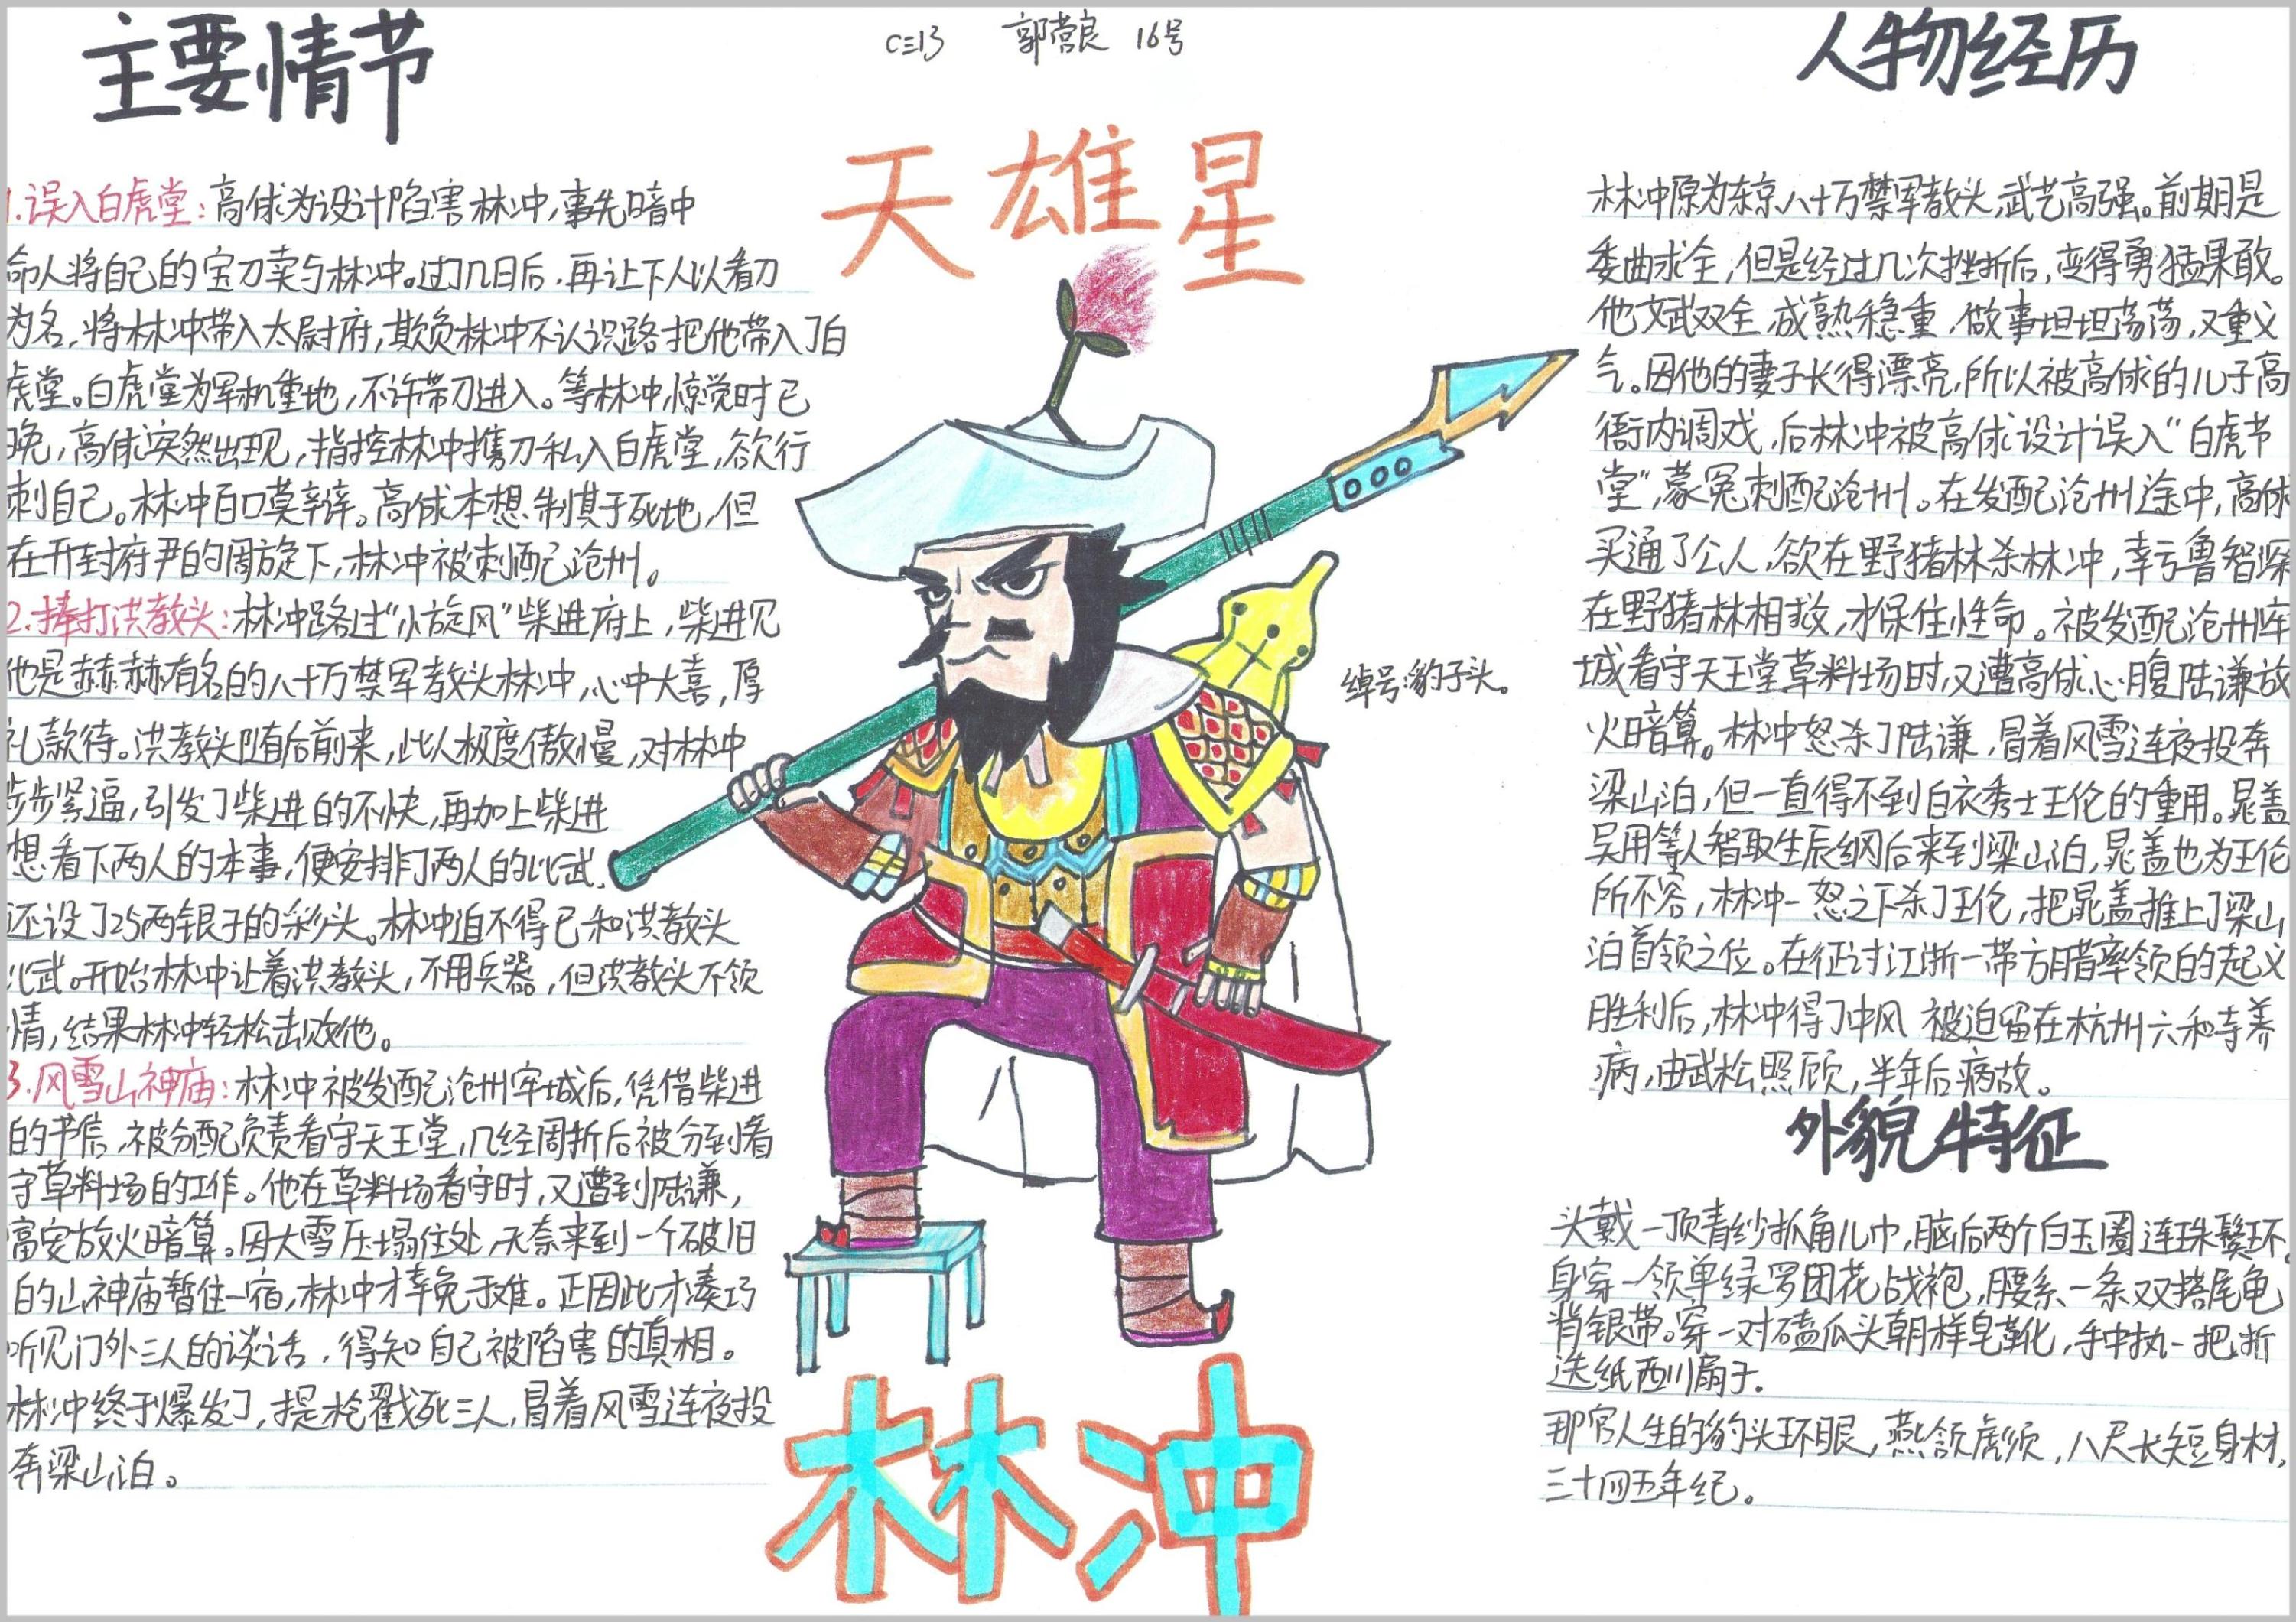 主要情节
1.误入白虎堂:高俅为设计陷害林冲,事先暗中
命人将自己的宝刀卖与林冲。过几日后,再让下人以看刀
为名,将林冲带入太尉府,欺负林冲不认识路把他带入了白
虎堂。白虎堂为军机重地,不许带刀进入。等林冲惊觉时已
晚,高俅突然出现,指控林冲携刀私入白虎堂,欲行
刺自己。林冲百口莫辩。高俅本想制其于死地,但
在开封府尹的周旋下,林冲被刺配沧州。
2.捧打洪教头:林冲路过“小旋风”柴进府上,柴进见
他是赫赫有名的八十万禁军教头林冲,心中大喜,厚
礼款待。洪教头随后前来,此人极度傲慢,对林冲
步步紧逼,引发了柴进的不快,再加上柴进
想看下两人的本事,便安排了两人的比武,
还设了25两银子的彩头。林冲迫不得已和洪教头
比武。开始林冲让着洪教头,不用兵器,但洪教头不领
情,结果林冲轻松击败他。
3.风雪山神庙:林冲被发配沧州牢城后,凭借柴进
的书信,被分配负责看守天王堂,几经周折后被分到看
守草料场的工作。他在草料场看守时,又遭到陆谦,
富安放火暗算。因大雪压塌住处,无奈来到一个破旧
的山神庙暂住一宿,林冲才幸免于难。正因此才凑巧
听见门外三人的谈话,得知自己被陷害的真相。
林冲终于爆发了,提枪戳死三人,冒着风雪连夜投
奔梁山泊。
C三13 郭营良 16号
天雄星
绰号:豹子头。
林冲
人物经历
林冲原为东京八十万禁军教头,武艺高强。前期是
委曲求全,但是经过几次挫折后,变得勇猛果敢。
他文武双全,成熟稳重,做事坦坦荡荡,又重义
气。因他的妻子长得漂亮,所以被高俅的儿子高
衙内调戏,后林冲被高俅设计误入“白虎节
堂”,蒙冤刺配沧州。在发配沧州途中,高俅
买通了公人,欲在野猪林杀林冲,幸亏鲁智深
在野猪林相救,才保住性命。被发配沧州牢
城看守天王堂草料场时,又遭高俅心腹陆谦放
火暗算。林冲怒杀了陆谦,冒着风雪连夜投奔
梁山泊,但一直得不到白衣秀士王伦的重用。晁盖
吴用等人智取生辰纲后来到梁山泊,晁盖也为王伦
所不容,林冲一怒之下杀了王伦,把晁盖推上了梁山
泊首领之位。在征讨江浙一带方腊率领的起义
胜利后,林冲得了中风 被迫留在杭州六和寺养
病,由武松照顾,半年后病故。
外貌特征
头戴一顶青纱抓角儿巾,脑后两个白玉圈连珠鬓环。
身穿一领单绿罗团花战袍,腰系一条双搭尾龟
背银带。穿一对磕瓜头朝样皂靴,手中执一把折
迭纸西川扇子.
那官人生的豹头环眼,燕颔虎须,八尺长短身材,
三十四五年纪。